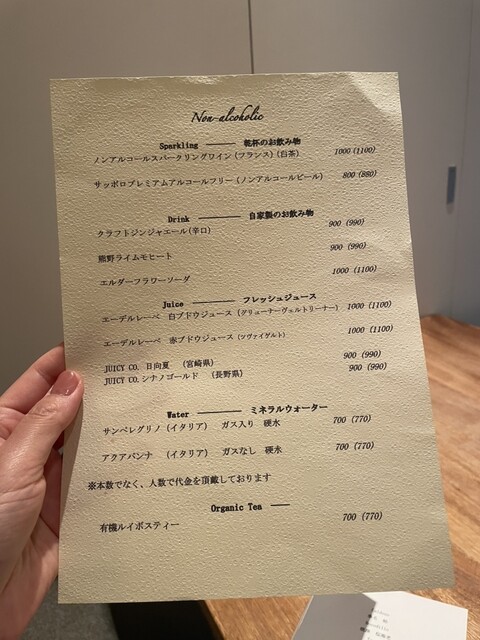 Non-alcoholic
Sparkling ――― 乾杯のお飲み物
ノンアルコールスパークリングワイン (フランス) (白茶) 1000 (1100)
サッポロプレミアムアルコールフリー (ノンアルコールビール) 800 (880)
Drink ――― 自家製のお飲み物
クラフトジンジャエール (辛口) 900 (990)
熊野ライムモヒート 900 (990)
エルダーフラワーソーダ 1000 (1100)
Juice ――― フレッシュジュース
エーデルレーベ 白ブドウジュース (グリューナーヴェルトリーナー) 1000 (1100)
エーデルレーベ 赤ブドウジュース (ツヴァイゲルト) 1000 (1100)
JUICY CO. 日向夏 (宮崎県) 900 (990)
JUICY CO. シナノゴールド (長野県) 900 (990)
Water ――― ミネラルウォーター
サンペレグリノ (イタリア) ガス入り 硬水 700 (770)
アクアパンナ (イタリア) ガスなし 硬水 700 (770)
※本数でなく、人数で代金を頂戴しております
Organic Tea ―
有機ルイボスティー 700 (770)